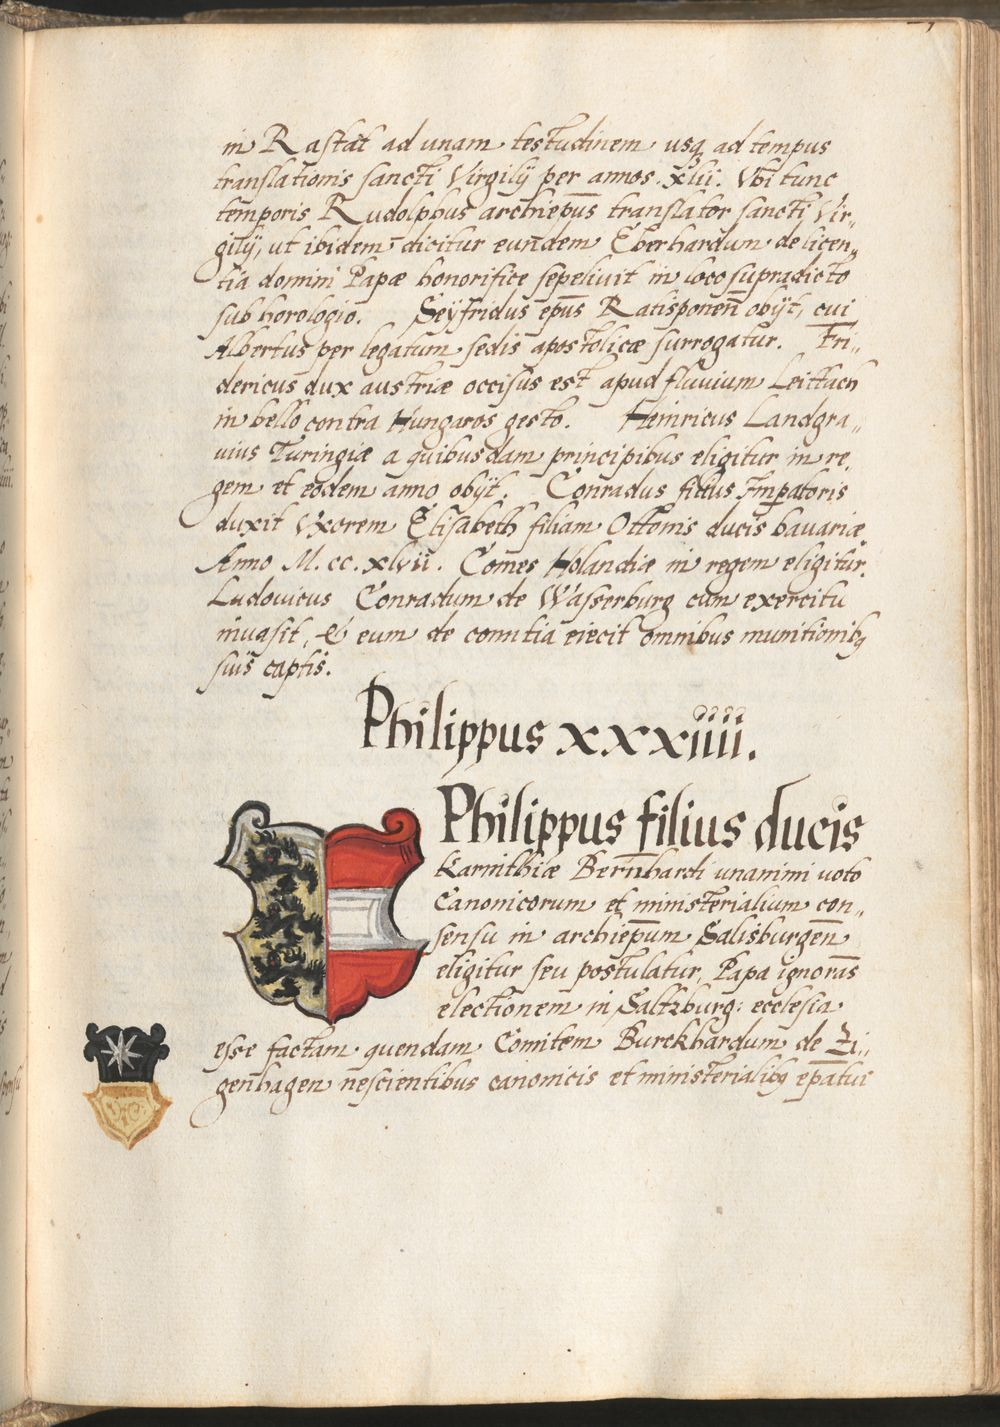 in Rastat ad unam testudinem usq ad tempus
translationis sancti Virgilij per annos .xlii. Vbi tunc
temporis Rudolphus archiepūs translator sancti Vir„
gilij, ut ibidem dicitur eundem Eberhardum de licen„
tia domini Papæ honorifice sepelivit in loco supradicto
sub horologio. Seyfridus epūs Ratisponen̄ obijt, cui
Albertus per legatum sedis apostolicæ surrogatur. Fri„
dericus dux austriæ occisus est apud fluvium Leittach
in bello contra Hungaros gesto. Heinricus Landgra„
uius Turingiæ a quibusdam principibus eligitur in re„
gem et eodem anno obijt. Conradus filius Imperatoris
duxit Vxorem Elisabeth filiam Ottonis ducis bavariæ.
Anno M.cc.xlvii. Comes Holandiæ in regem eligitur.
Ludovicus Conradum de Wasserburg cum exercitu
inuasit, & eum de comitia eiecit omnibus munitionibq
suis captis.
Philippus xxxiiii.
Philippus filius ducis
Karinthiæ Bernhardi unanimi voto
Canonicorum et ministerialium con„
sensu in archiep̄um Salisburgen̄
eligitur seu postulatur. Papa ignorās
electionem in Saltzburg: ecclesia
esse factam quendam Comitem Burckhardum de Zi„
genhagen nescientibus canonicis et ministerialibq ep̄atui